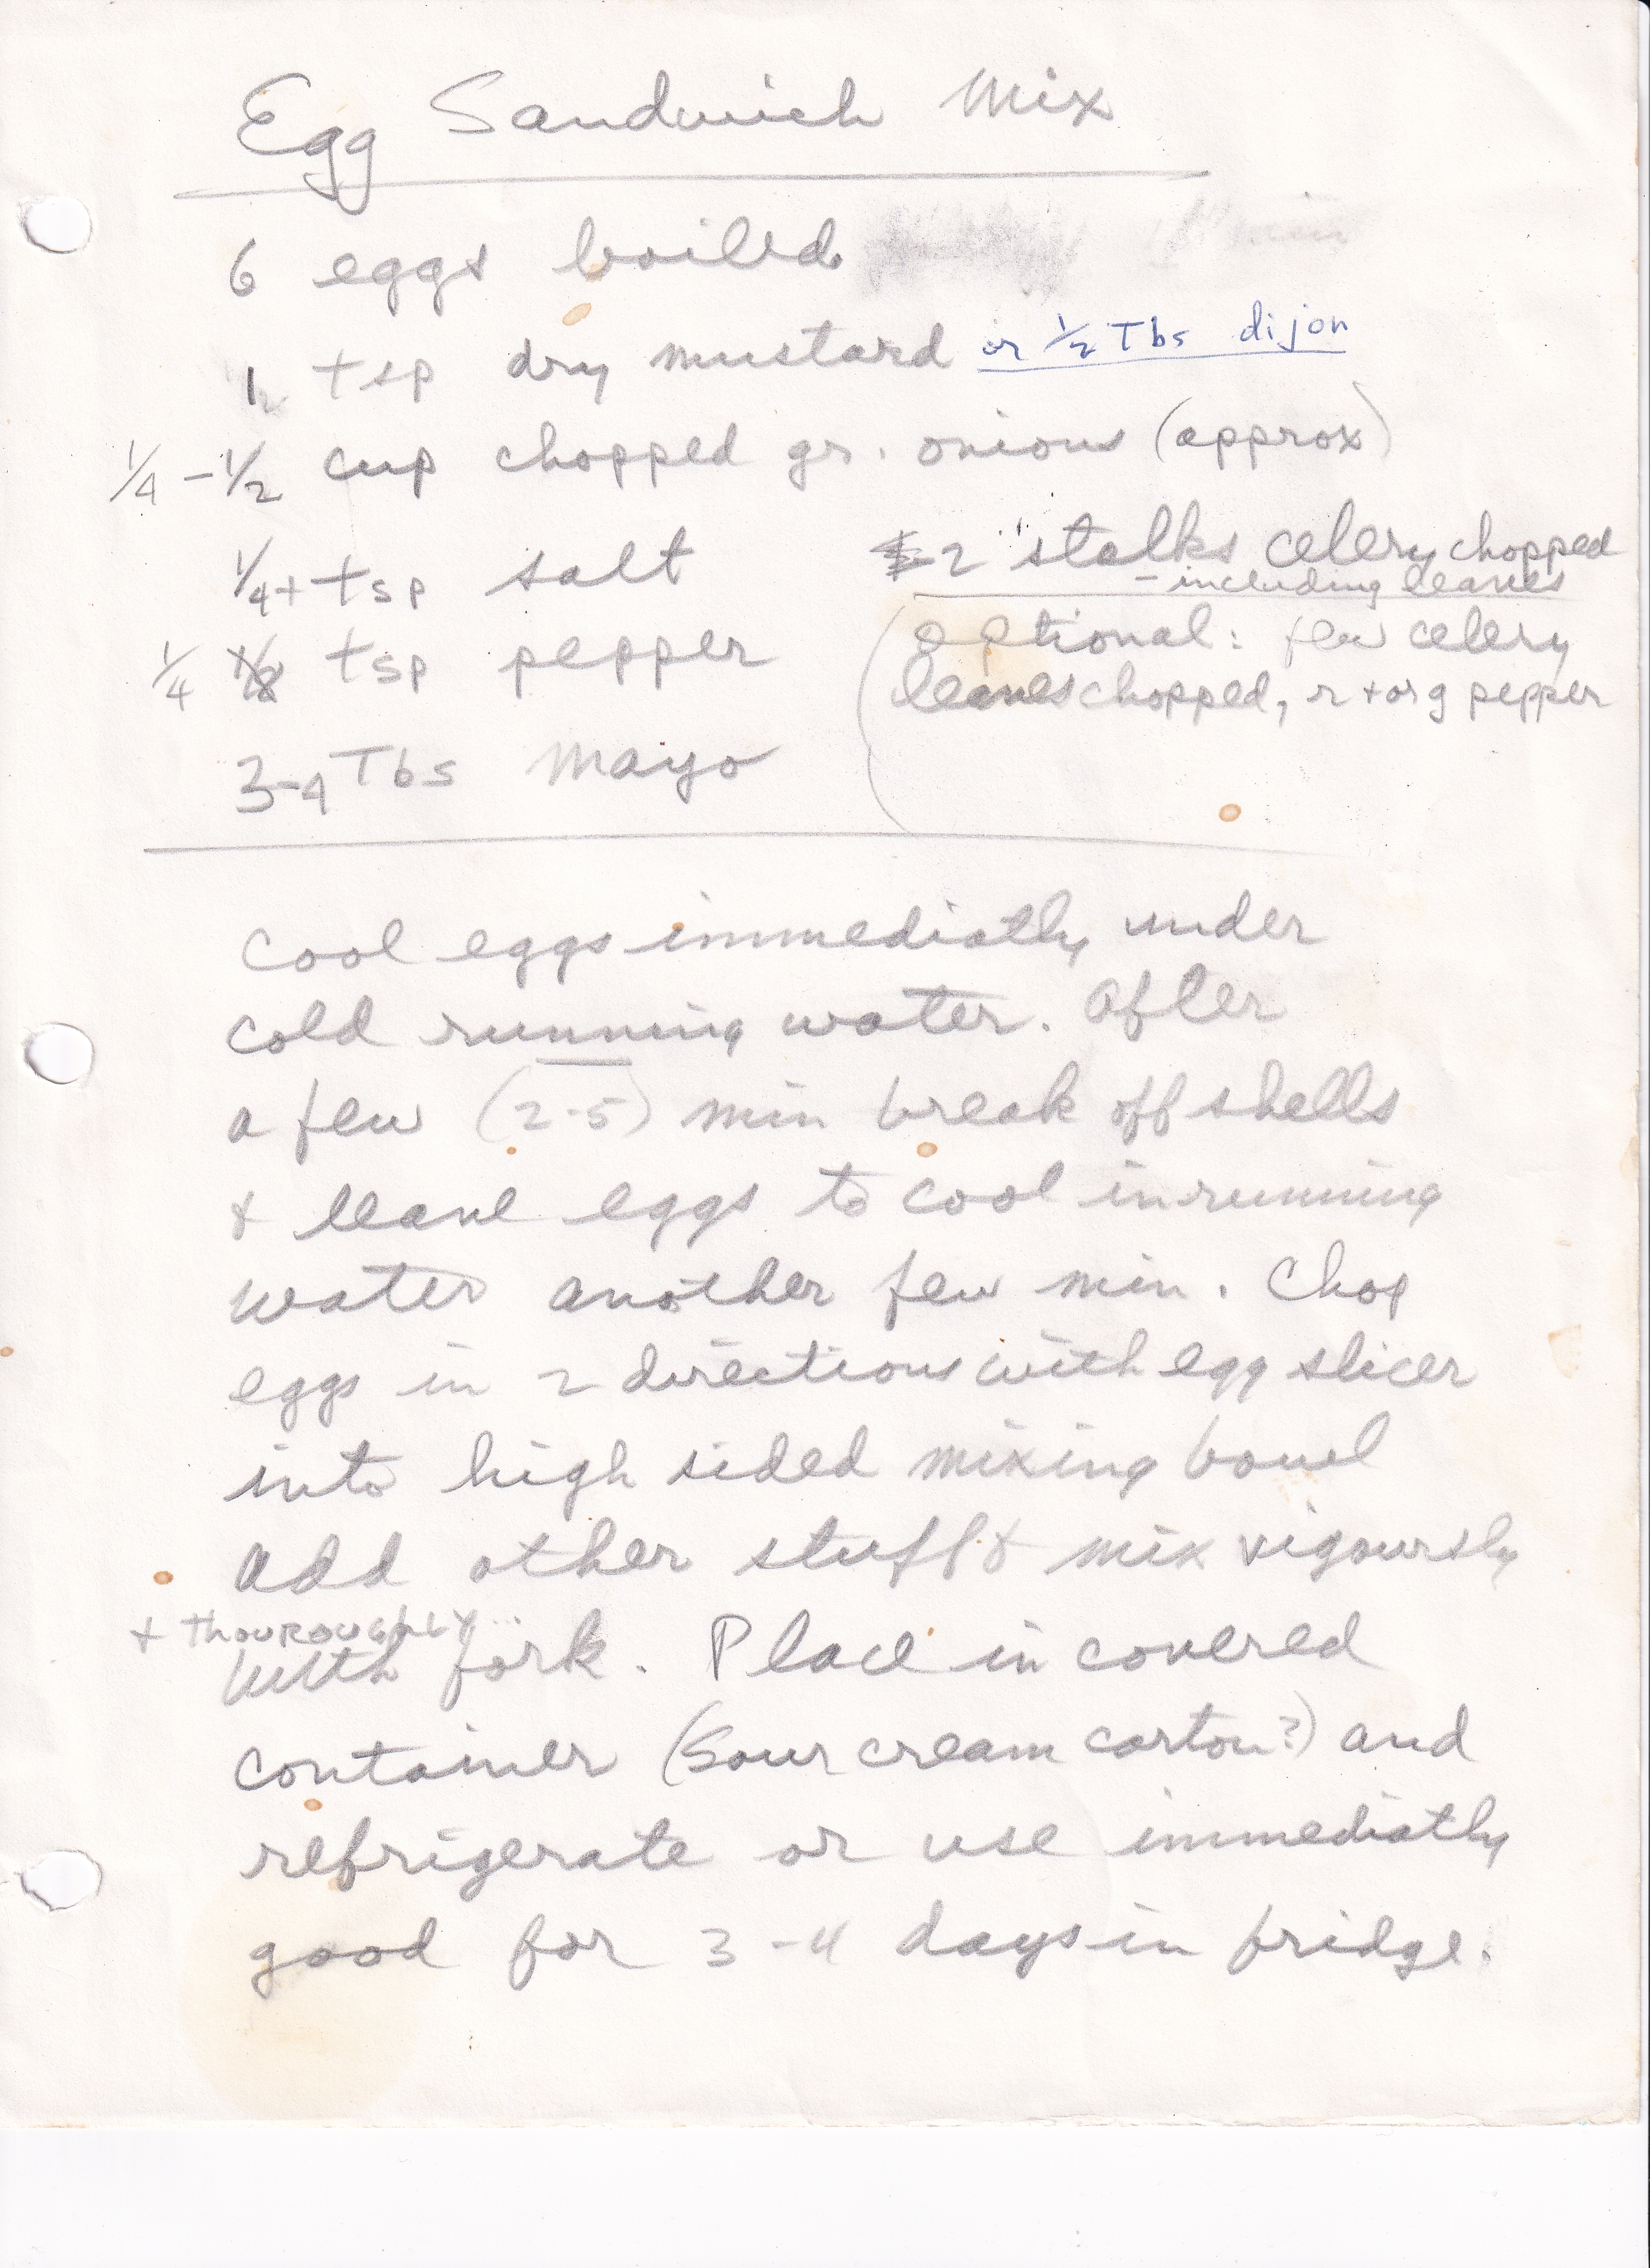 Egg Sandwich Mix
6 eggs boiled
1 tsp dry mustard or 1/2 Tbs dijon
1/4 - 1/2 cup chopped gr. onions (approx)
1/4 + tsp salt
2 stalks celery chopped
- including leaves
1/4 tsp pepper
(optional: few celery
leaves chopped, r + org pepper
3-4 Tbs mayo
Cool eggs immediatly under
cold running water. After
a few (2-5) min break off shells
& leave eggs to cool in running
water another few min. Chop
eggs in 2 directions with egg slicer
into high sided mixing bowl
add other stuff & mix vigoursly
+ THOUROUGHLY
with fork. Place in covered
container (sour cream carton?) and
refrigerate or use immediatly
good for 3-4 days in fridge.